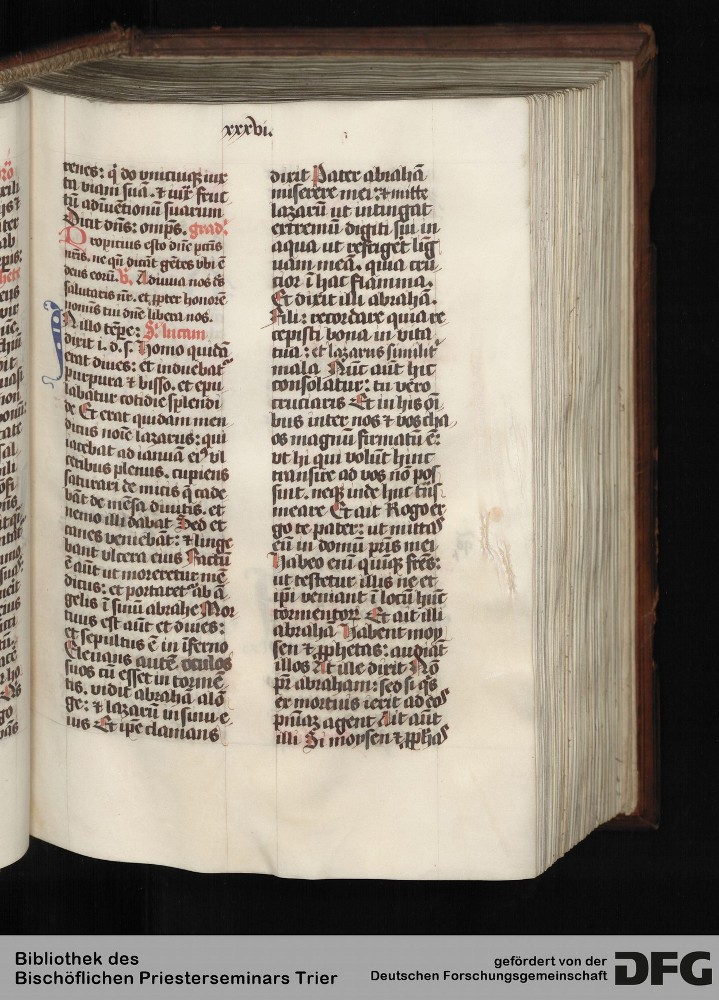 xxxvi.
renes: q̄ do vnicuiq̨ iux
ta viam suā. ⁊ iux̄ fruc
tū adiuētionū suarum
Dicit dn̄s: omp̄s. grad̄.
Propicius esto dn̄e pctīs
nr̄is. ne qn̄ dicāt gētes vbi ē
deus eorū. V. Adiuua nos d̄s
salutaris nr̄. et ꝓpter honorē
nominis tui dn̄e libera nos.
In illo tēpe: S. lucam
Dixit i. d. s. Homo quidā
erat diues: et induebat᷑
purpura ⁊ bisso. et epu
labātur cotidie splendi
de Et erat quidam men
dicus noīe lazarus: qui
iacebat ad ianuā eiꝰ vl
ceribus plenus. cupiens
saturari de micis q̄ cade
bāt de mēsa diuitis. et
nemo illi dabat Sed et
canes veniebāt: ⁊ linge
bant vlcera eius Factū
ē aūt ut moreretur mē
dicus: et portaret᷑ ab ā
gelis ī sinū abrahe Mor
tuus est aūt et diues:
et sepultus ē in īferno
Eleuans autē oculos
suos cū esset in tormē
tis. vidit abrahā alō
ge: ⁊ lazarū in sinu e
ius Et ip̄e clamans
dixit Pater abrahā
miserere mei: ⁊ mitte
lazarū ut intingat
extremū digiti sui in
aqua ut refriget lig
uam meā. quia cru
cior ī hac flamma.
Et dixit illi abrahā.
Fili: recordare quia re
cepisti bona in vita
tua: et lazarus similit᷑
mala Nūc aūt hic
consolatur: tu vero
cruciaris Et in his oī
bus inter nos ⁊ vos cha
os magnū firmatū ē:
vt hi qui volūt hinc
transire ad vos nō pos
sint. neq̨ inde huc trās
meare Et ait Rogo er
go te pater: ut mittas
eū in domū pr̄is mei
Habeo enī quiq̨ fr̄es:
ut testetur illis ne et
ip̄i veniant ī locū hūc
tormentor̄ Et ait illi
abrahā Habent moy
sen ⁊ ꝓphetas: audiāt
illos At ille dixit Nō
pr̄ abraham: sed si q̄s
ex mortuis ierit ad eos
pn̄iaꝫ agent Ait aūt
illi Si moysen ⁊ ꝓphās
Bibliothek des
Bischöflichen Priesterseminars Trier
gefördert von der
Deutschen Forschungsgemeinschaft
DFG